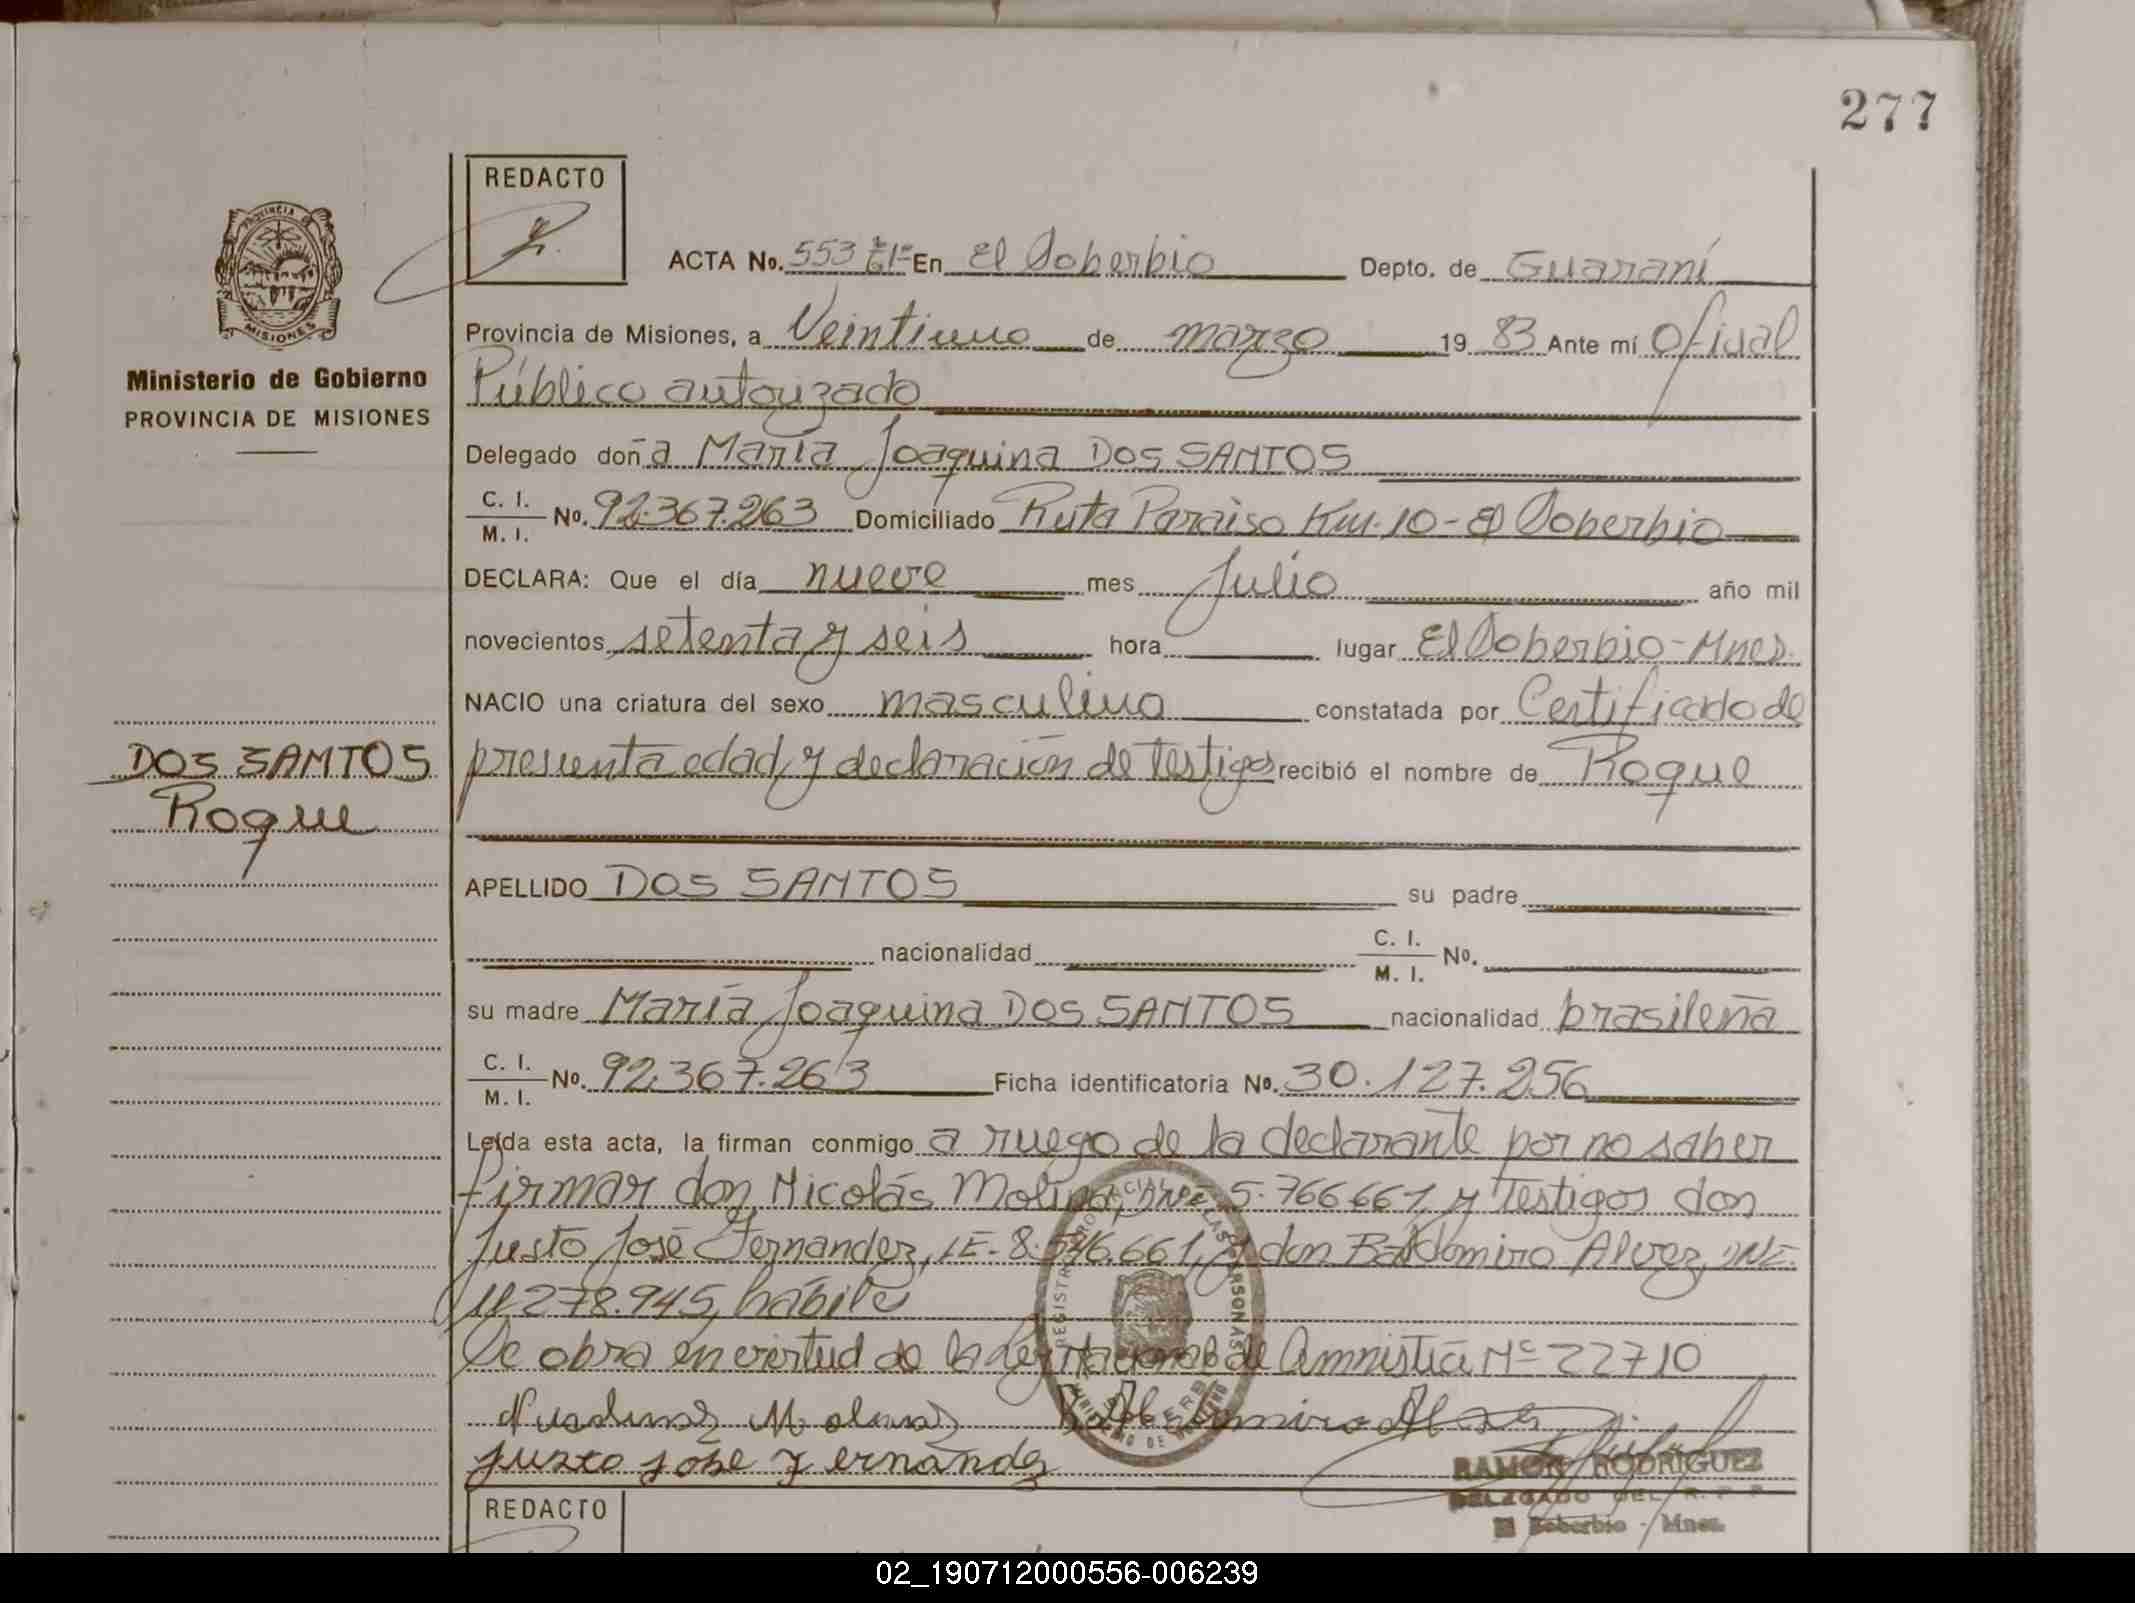 277
REDACTO
ACTA No. 553 En El Soberbio Depto. de Guaraní
Provincia de Misiones, a Veintiuno de marzo 19 83 Ante mí Oficial
Público autorizado
Delegado doña María Joaquina DOS SANTOS
C. I.
M. I. No. 92.367.263 Domiciliado Ruta Paraiso Km. 10 - El Soberbio
DECLARA: Que el día nueve mes Julio año mil
novecientos setenta y seis hora lugar El Soberbio - Mnes.
NACIO una criatura del sexo masculino constatada por Certificado de
presunta edad, y declaración de testigos recibió el nombre de Roque
APELLIDO DOS SANTOS su padre
nacionalidad C. I.
M. I. No.
su madre María Joaquina DOS SANTOS nacionalidad brasileña
C. I.
M. I. No. 92.367.263 Ficha identificatoria No. 30.127.256
Leída esta acta, la firman conmigo a ruego de la declarante por no saber
firmar don Nicolás Molina, 5.766.661, y Testigos don
Justo José Fernandez, LE. 8.546.661, y don Baldomiro Alvez, DNI.
11.278.945, hábiles
Se obra en virtud de la Ley Nacional de Amnistía Nº 22710
Baldomiro Alvez
Justo José Fernández
RAMON RODRIGUEZ
DELEGADO DEL R. P. P.
El Soberbio - Mnes.
REDACTO
PROVINCIA DE
MISIONES
Ministerio de Gobierno
PROVINCIA DE MISIONES
DOS SANTOS
Roque
02_190712000556-006239